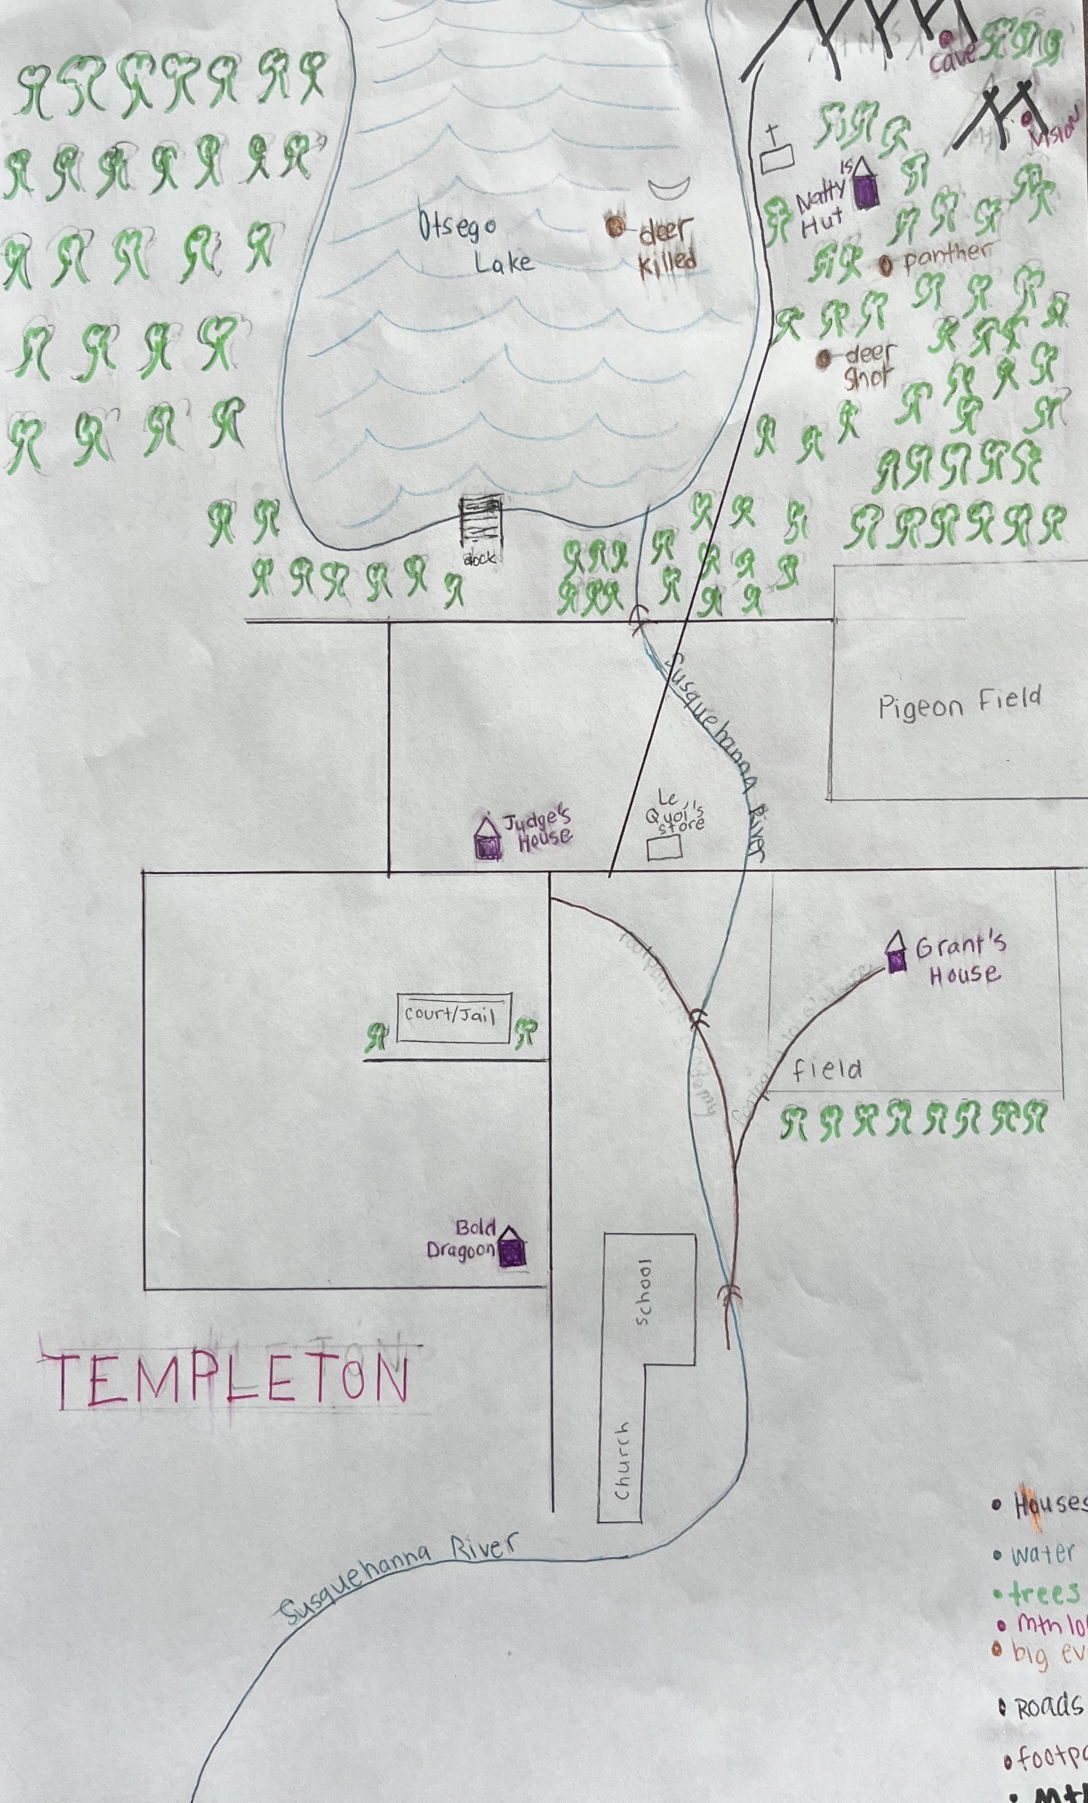 cave
vision
Natty's
Hut
Otsego
Lake
deer
killed
panther
deer
shot
dock
Susquehanna River
Pigeon Field
Le
Quoi's
store
Judge's
House
Grant's
House
court/Jail
field
Bold
Dragoon
school
church
TEMPLETON
Susquehanna River
Houses
water
trees
mtn
big
Roads